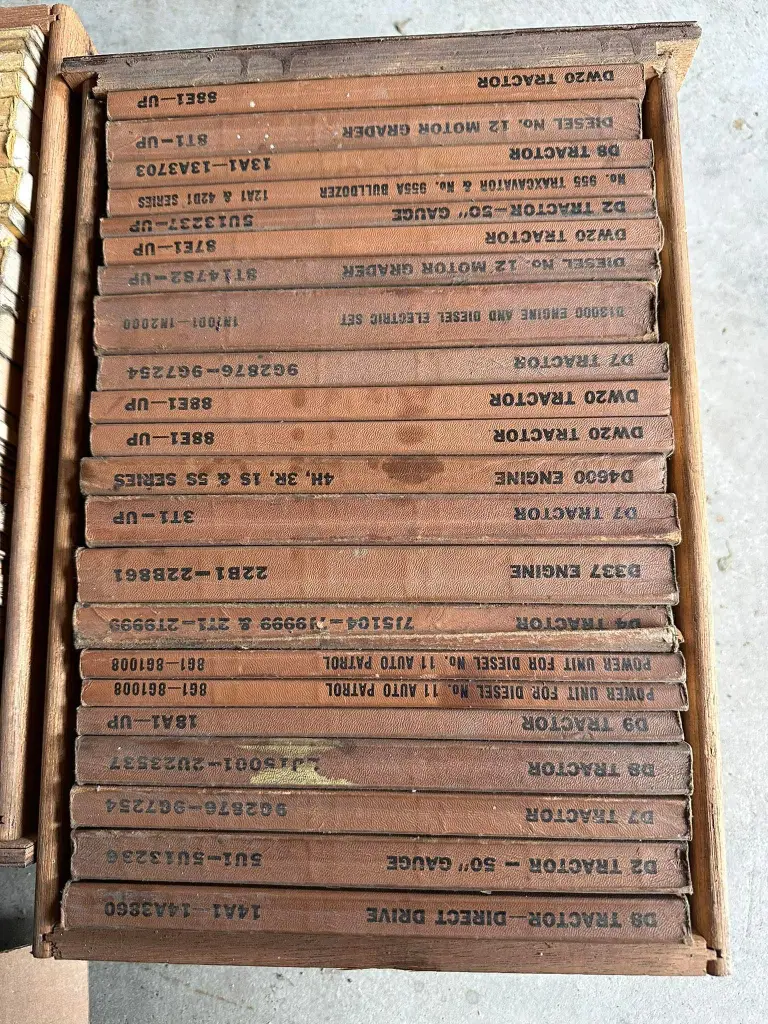 D8 TRACTOR—DIRECT DRIVE 14A1—14A3860
D2 TRACTOR — 50" GAUGE 5U1—5U13236
D7 TRACTOR 9G2876—9G7254
D8 TRACTOR 2U15001—2U23537
D9 TRACTOR 18A1—UP
POWER UNIT FOR DIESEL No. 11 AUTO PATROL 8G1—8G1008
POWER UNIT FOR DIESEL No. 11 AUTO PATROL 8G1—8G1008
D4 TRACTOR 7J5104—7J9999 & 2T1—2T9999
D337 ENGINE 22B1—22B861
D7 TRACTOR 3T1—UP
D4600 ENGINE 4H, 3R, 1S & 5S SERIES
DW20 TRACTOR 88E1—UP
DW20 TRACTOR 88E1—UP
D7 TRACTOR 9G2876—9G7254
D13000 ENGINE AND DIESEL ELECTRIC SET 1N7001—1N2000
DIESEL No. 12 MOTOR GRADER 8T14782—UP
DW20 TRACTOR 87E1—UP
D2 TRACTOR—50" GAUGE 5U13237—UP
No. 955 TRAXCAVATOR & No. 955A BULLDOZER 12A1 & 42D1 SERIES
D8 TRACTOR 13A1—13A3703
DIESEL No. 12 MOTOR GRADER 8T1—UP
DW20 TRACTOR 88E1—UP